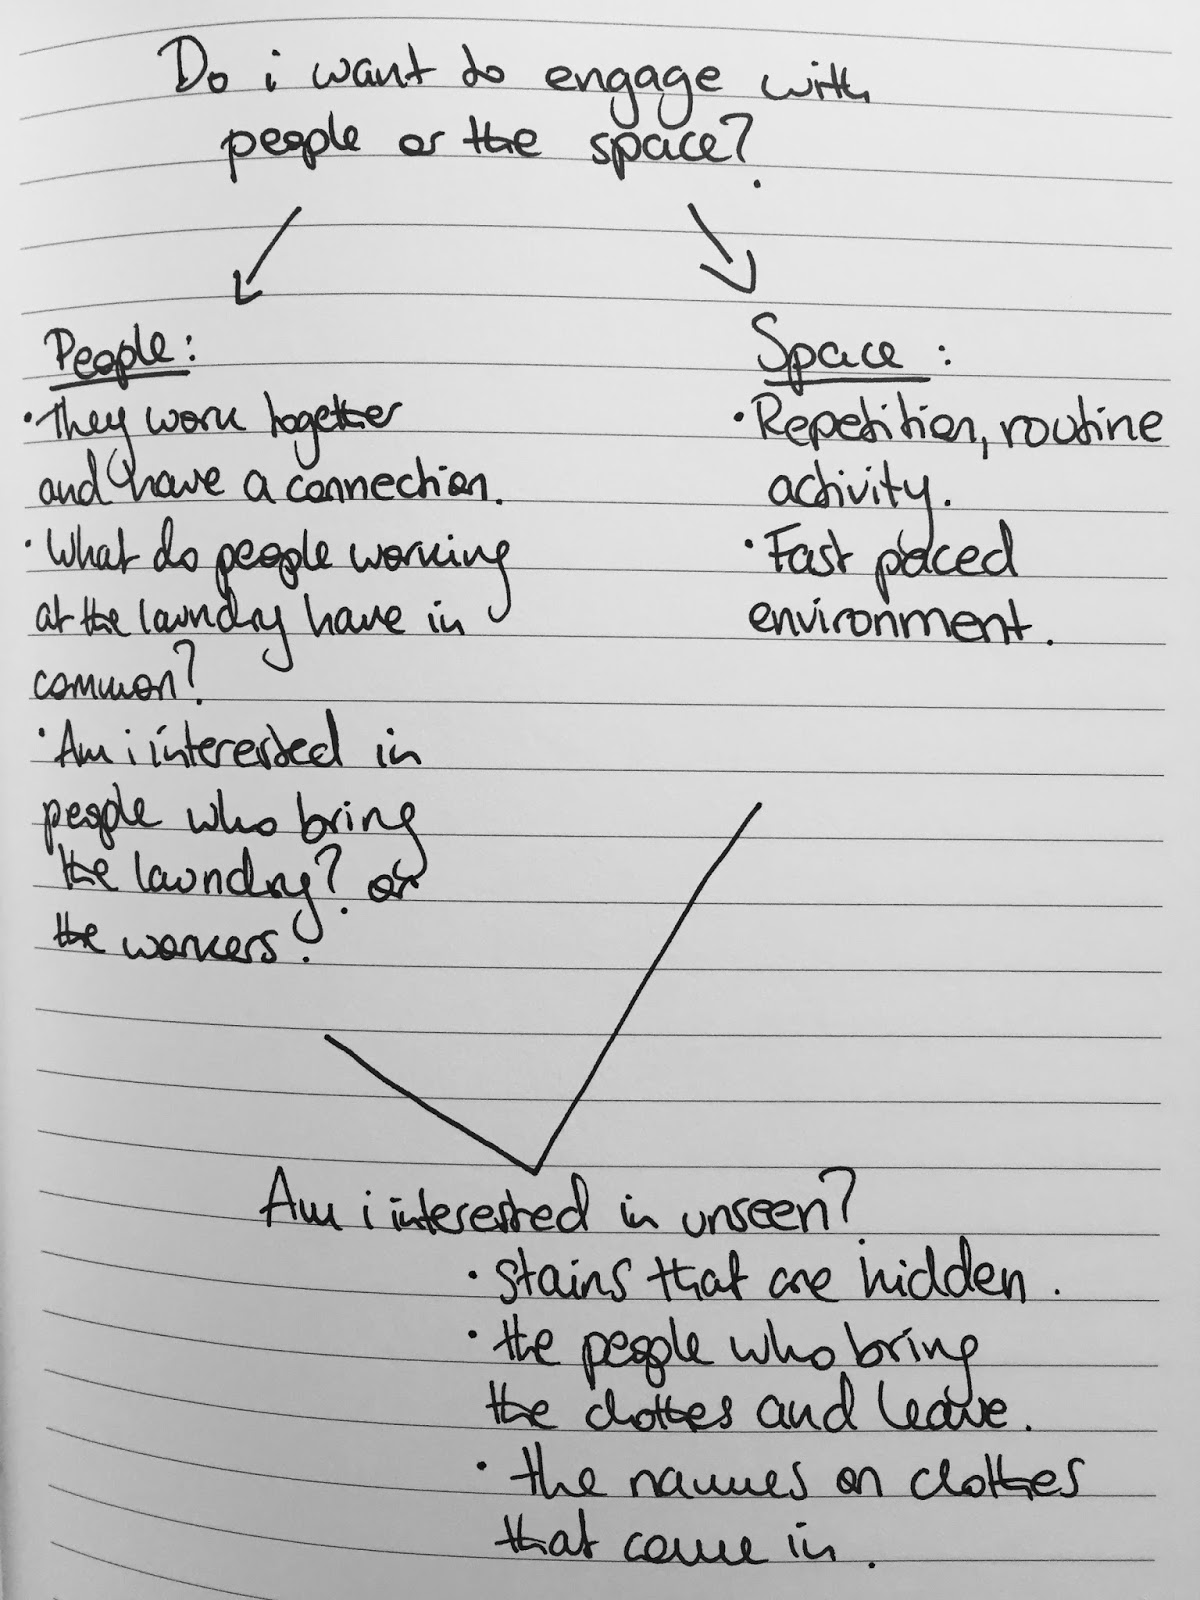 Do i want to engage with
people or the space?
People:
• They work together
and have a connection.
• What do people working
at the laundry have in
common?
• Am i interested in
people who bring
the laundry? or
the workers?
Space :
• Repetition, routine
activity.
• Fast paced
environment.
Am i interested in unseen?
• stains that are hidden.
• the people who bring
the clothes and leave.
• the names on clothes
that come in.